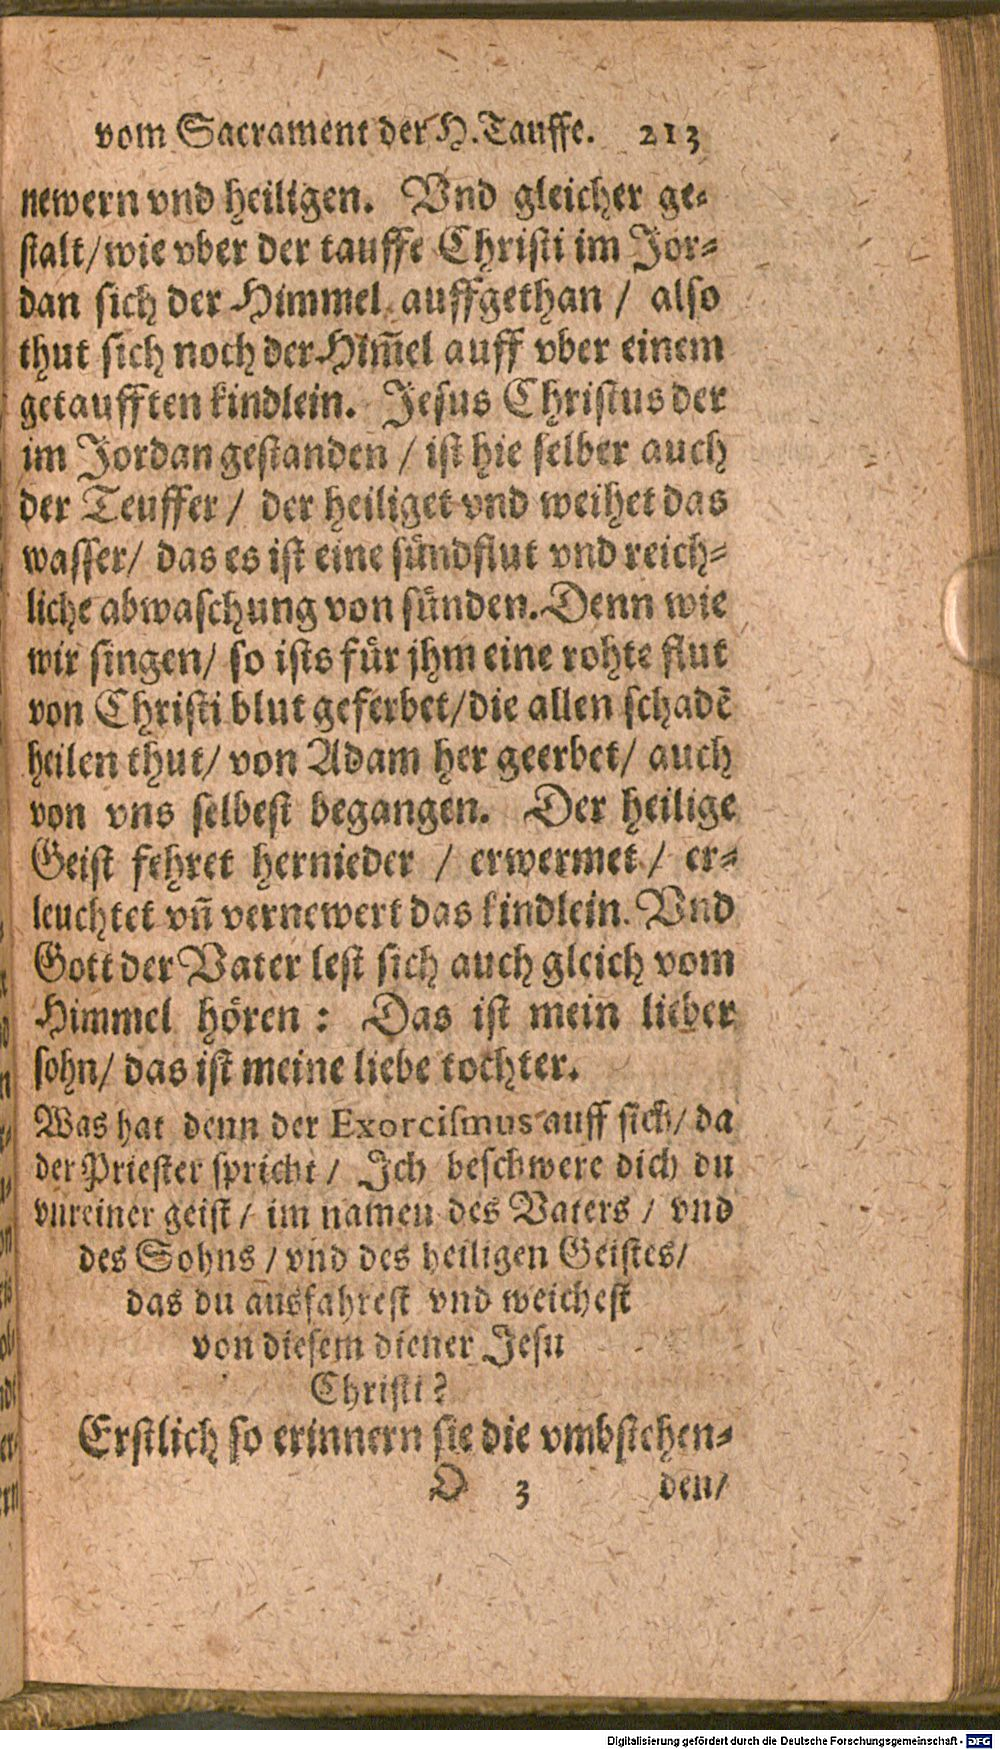 vom Sacrament der H. Tauffe. 213
newern vnd heiligen. Vnd gleicher ge-
stalt/ wie vber der tauffe Christi im Jor-
dan sich der Himmel auffgethan / also
thut sich noch der Him̃el auff vber einem
getaufften kindlein. Jesus Christus der
im Jordan gestanden / ist hie selber auch
der Teuffer / der heiliget vnd weihet das
wasser/ das es ist eine sündflut vnd reich-
liche abwaschung von sünden. Denn wie
wir singen/ so ists für jhm eine rohte flut
von Christi blut geferbet/ die allen schadẽ
heilen thut/ von Adam her geerbet/ auch
von vns selbest begangen. Der heilige
Geist fehret hernieder / erwermet / er-
leuchtet vñ vernewert das kindlein. Vnd
Gott der Vater lest sich auch gleich vom
Himmel hören : Das ist mein lieber
sohn/ das ist meine liebe tochter.
Was hat denn der Exorcismus auff sich/ da
der Priester spricht / Ich beschwere dich du
vnreiner geist / im namen des Vaters / vnd
des Sohns / vnd des heiligen Geistes/
das du ausfahrest vnd weichest
von diesem diener Jesu
Christi?
Erstlich so erinnern sie die vmbstehen-
O 3 den/
Digitalisierung gefördert durch die Deutsche Forschungsgemeinschaft - DFG